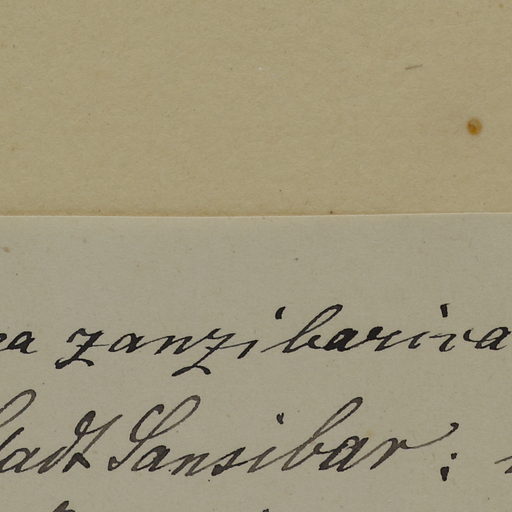 zanzibarica
Stadt Sansibar: